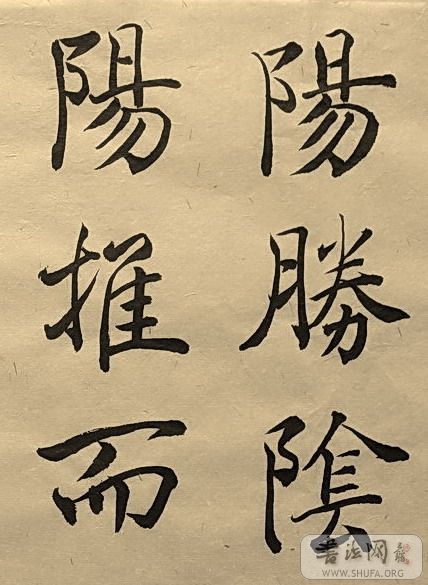 陽勝陰
陽推而
書法网
WWW.SHUFA.ORG